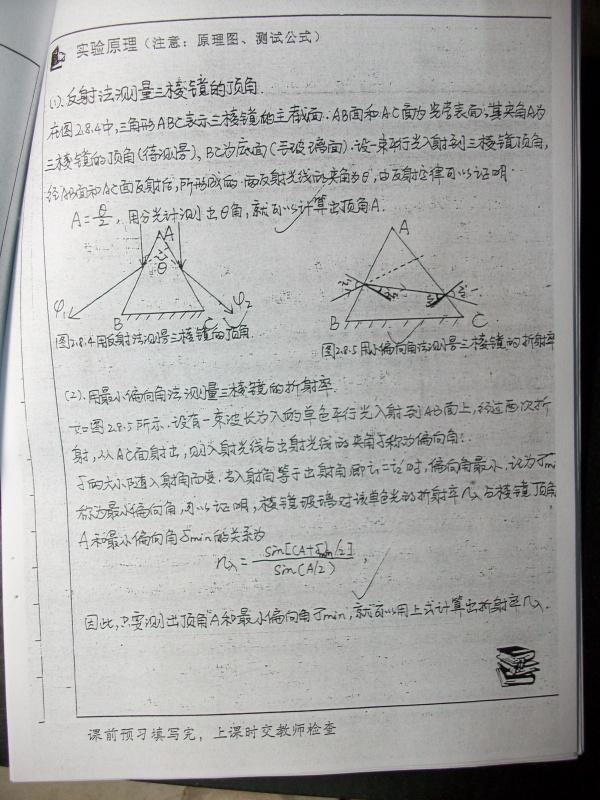 实验原理(注意:原理图、测试公式)
(1).反射法测量三棱镜的顶角.
在图2.8.4中,三角形ABC表示三棱镜的主截面.AB面和AC面为光学表面,其夹角A为
三棱镜的顶角(待测量),BC为底面(毛玻璃面).设一束平行光入射到三棱镜顶角,
经AB面和AC面反射后,所形成的两反射光线的夹角为θ,由反射定律可以证明.
A=θ/2,用分光计测出θ角,就可以计算出顶角A.
A
θ
φ1
φ2
B
图2.8.4用反射法测量三棱镜的顶角.
A
B
C
图2.8.5用小偏向角法测量三棱镜的折射率
(2).用最小偏向角法测量三棱镜的折射率.
如图2.8.5所示.设有一束波长为λ的单色平行光入射到AB面上,经过两次折
射,从AC面射出,则入射光线与出射光线的夹角δ称为偏向角.
δ的大小随入射角而变.当入射角等于出射角即i1=i2'时,偏向角最小,记为δmin
称为最小偏向角,可以证明,棱镜玻璃对该单色光的折射率nλ与棱镜顶角
A和最小偏向角δmin的关系为
nλ=sin[(A+δmin)/2]/sin(A/2),
因此,只要测出顶角A和最小偏向角δmin,就可以用上式计算出折射率nλ.
课前预习填写完,上课时交教师检查